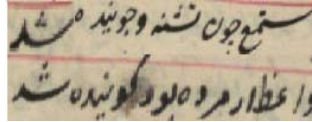 مستمع چون تشنه و جوینده شد
واعظ ار مرده بود گوینده شد